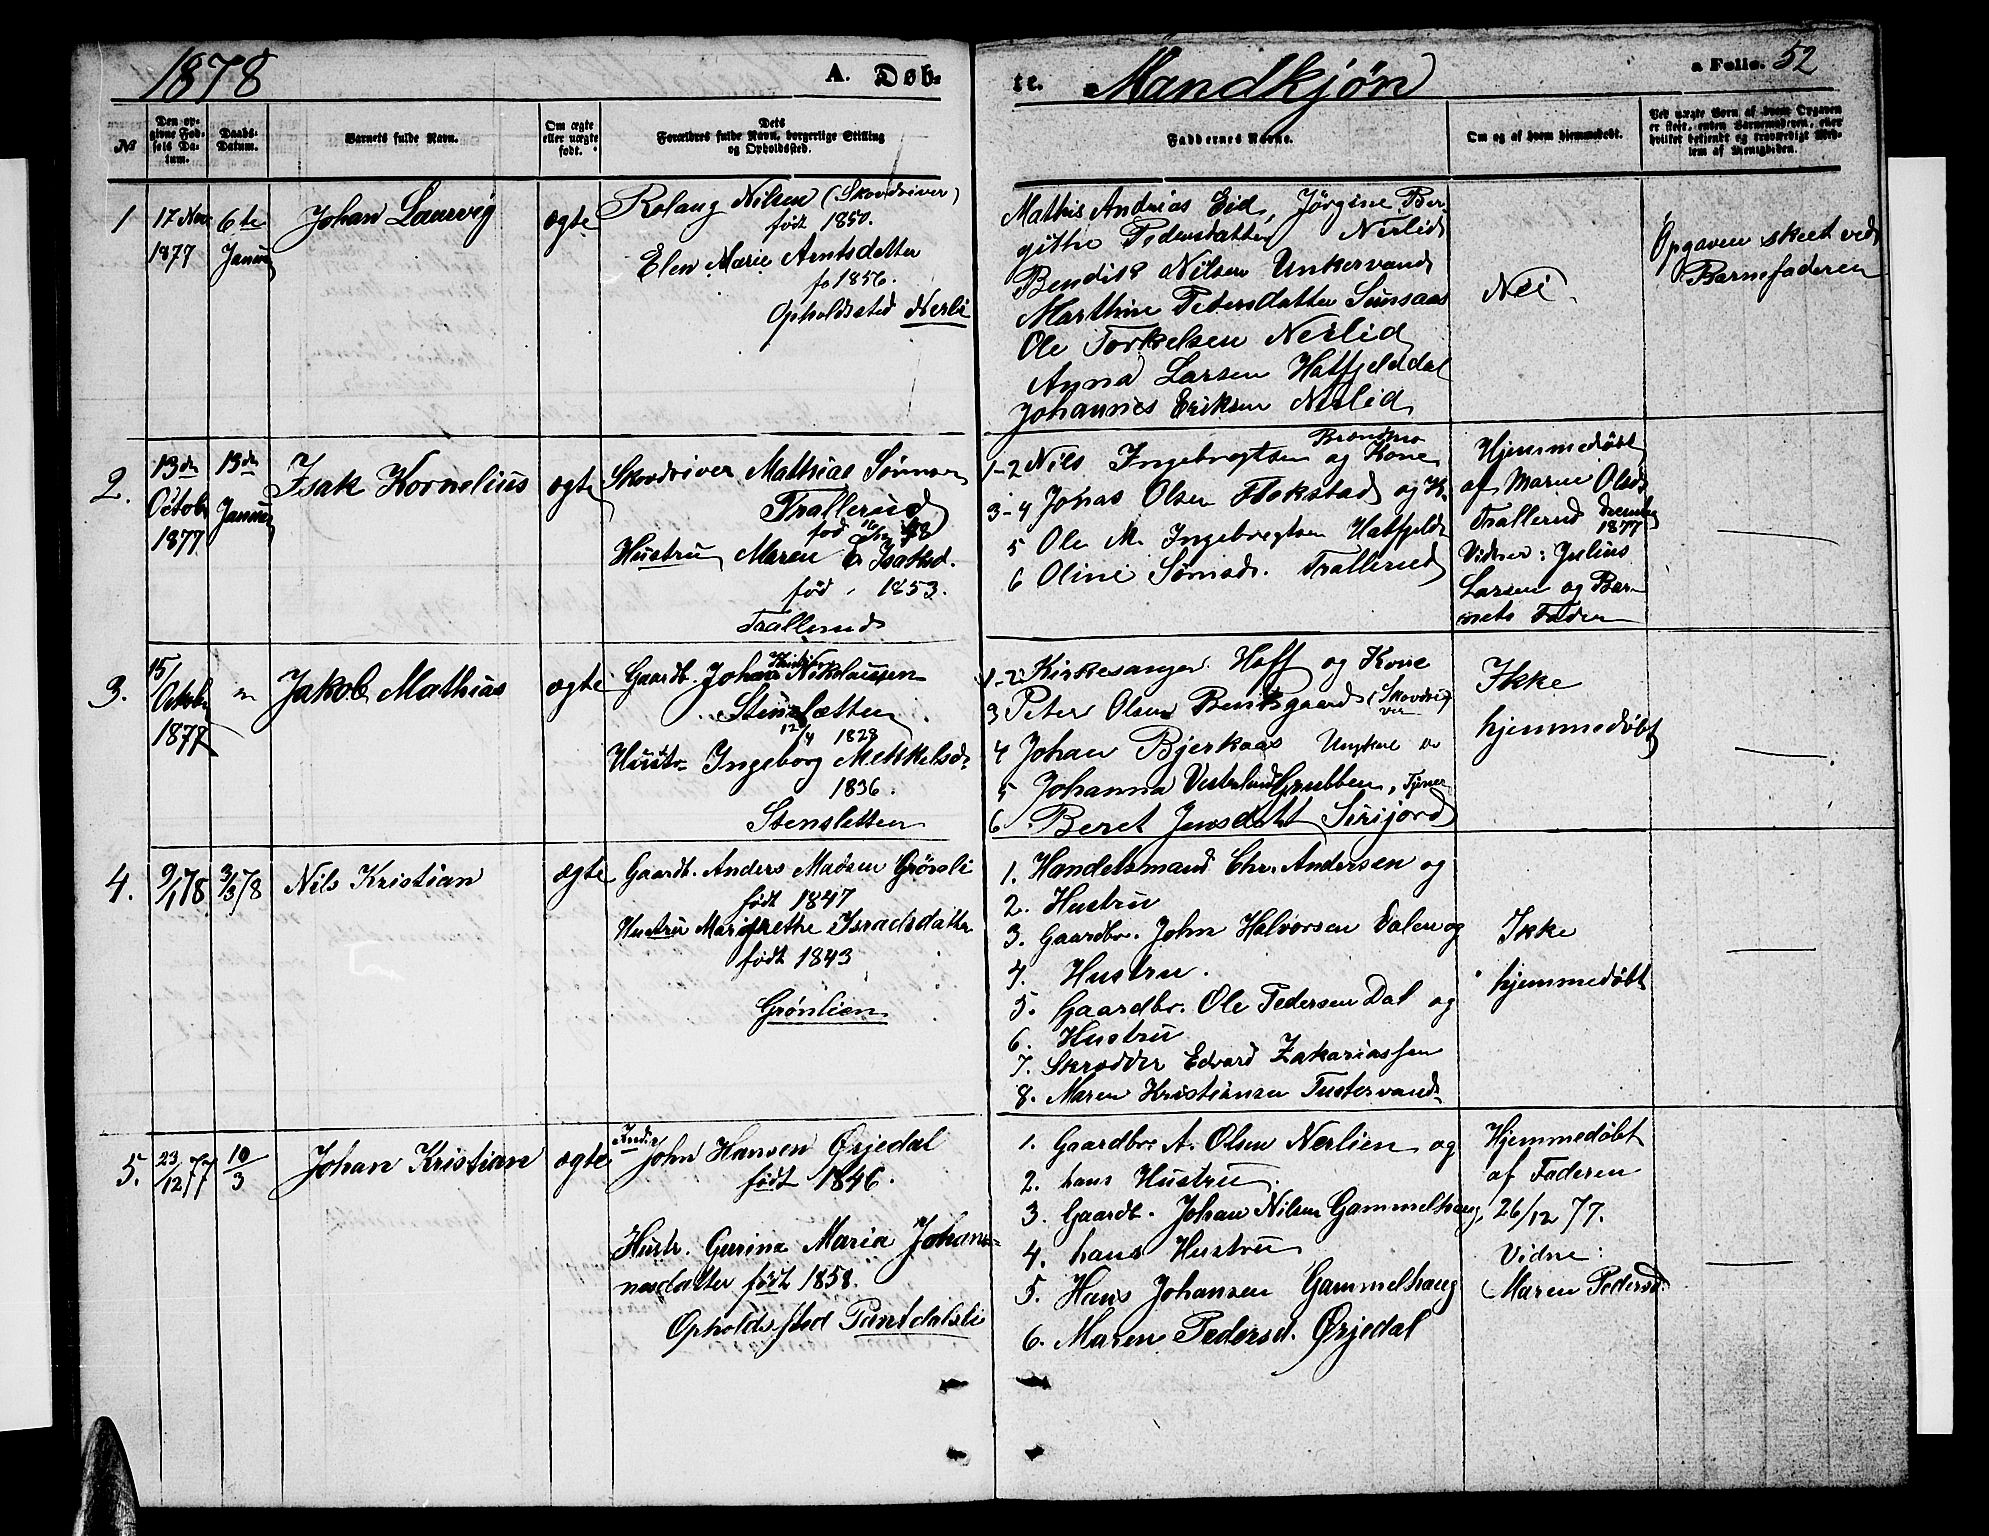 1878
A. Døb-
te. Mandkjøn
a Folio. 52
No
Den op-
givne Fød-
sels Da-
tum.
Daabs-
Datum.
Barnets fulde Navn.
Om ægte
eller uægte
født.
Dets
Forældres fulde Navn, borgerlige Stilling
og Opholdssted.
Faddernes Navne.
Om og af hvem hjemmedøbt.
Ved uægte Børn af hvem Opgaven
er skeet, enten Barnemoderen, eller
hvilket bekjendt og troværdigt Med-
lem af Menigheden.
1
17 Nov
1877
6te
Januar
Johan Laurvig
ægte
Rolaug Nilsen (Skovdriver)
født 1850.
Elen Marie Arntsdatter
fø 1856.
Opholdssted Nerli
Mathis Andrias Eid, Jørgine Ber-
githe Pedersdatter Nerlid
Bendik Nilsen Unkervand
Marthine Petersdatter
Ole Torkelsen Nerlid
Anna Larsen Hatfjelddal
Johannes Eriksen Nerlid
Nei.
Opgaven skeet ved
Barnefaderen
2.
13de
Octob
1877
13de
Januar
Isak Kornelius
ægte
Skovdriver Mathias Sørensen
Trallerud
fød 48
Hustru Maren E. Isaksd.
fød 1853.
Trallerud
1-2 Nils Ingebregtsen og Kone
3-4 Johas Olsen Flokstad og K.
5 Ole M. Ingebregtsen Hatfjeld
6 Oline Sørnsd. Trallerud
Hjemmedøbt
af Marne Olsd
Trallerud
1877
Vidner: Julius
Larsen og Bar-
nets Fader
3.
15/
Octob
1877
"
Jakob Mathias
ægte
Gaardb. Johan Nikolaussen
Stenslætten
12/4 1828
Hustr Ingeborg Mekkelsd.
1836.
Stensletten
1-2 Kirkesanger Hoff og Kone
3 Peter Olsen Bentsgaard (Skovdri-
ver
4 Johan Bjerkaas Ungkarl
5 Johanna Grubben,
6 Beret Jensdatt Sirijord
Ikke
hjemmedøbt
4.
9/1 78
3/3 78
Nils Kristian
ægte
Gaardb. Anders Madsen Grønli
født 1847
Hustru Margrethe Israelsdatter
født 1843
Grønlien
1. Handelsmand Chr. Andersen og
2. Hustru
3. Gaardbr. John Halvorsen Dalen og
4. Hustru.
5. Gaardbr. Ole Pedersen Dal og
6. Hustru
7. Skrædder Edvard Zakariassen
8. Maren Kristiansen Tustervand
Ikke
hjemmedøbt
5.
23/12 77
10/3
Johan Kristian
ægte
John Hansen Ørjedal
født 1846.
Hustr. Gurina Maria Johan-
nesdatter født 1858.
Opholdssted Pantdalsli
1. Gaardbr. A. Olsen Nerlien og
2. hans Hustru.
3. Gaardb. Johan Nilsen Gammelhaug
4. hans Hustru
5. Hans Johansen Gammelhaug
6. Maren Pedersd. Ørjedal
Hjemmedøbt
af Faderen
26/12 77.
Vidne:
Maren Pedersd.